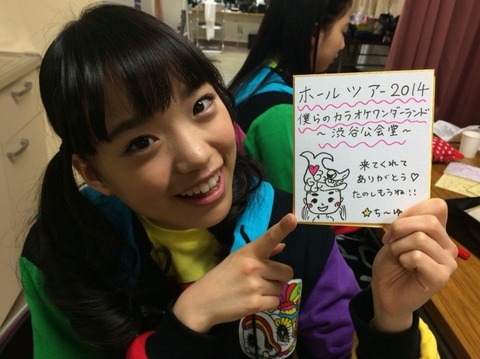 ホールツアー2014
僕らのカラオケワンダーランド
～渋谷公会堂～
来てくれて
ありがとう♡
たのしもうね!!
☆ち～ゆ